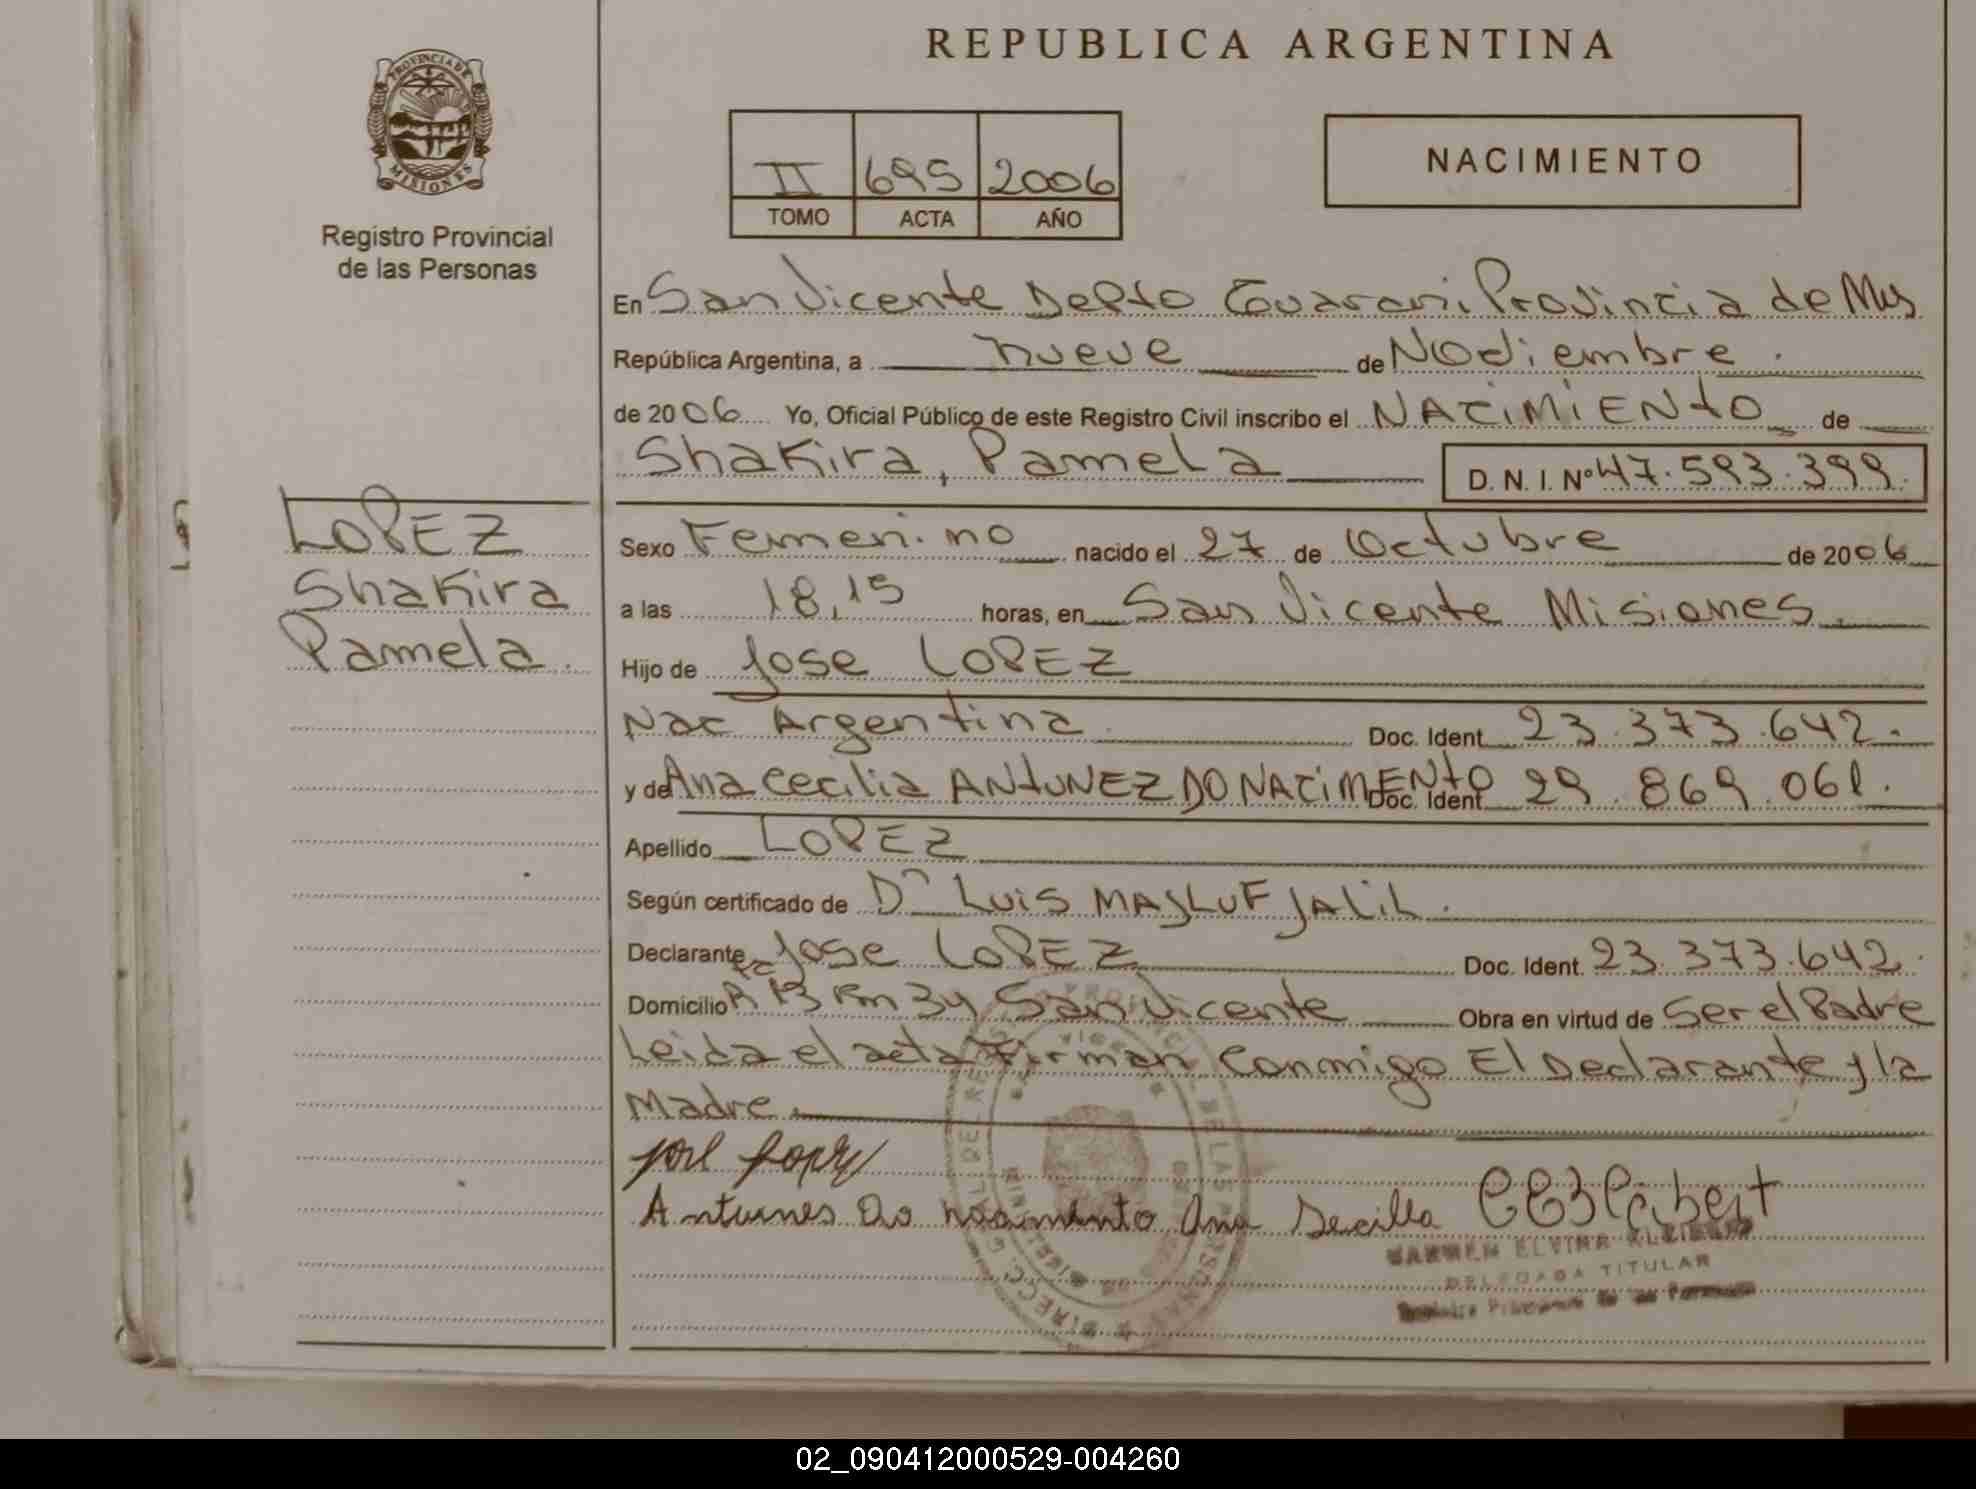 REPUBLICA ARGENTINA
PROVINCIA DE
MISIONES
Registro Provincial
de las Personas
II 695 2006
TOMO ACTA AÑO
NACIMIENTO
En San Vicente Depto Guarani Provincia de Mns
República Argentina, a nueve de Noviembre.
de 2006 Yo, Oficial Público de este Registro Civil inscribo el NACIMIENTO de
Shakira, Pamela D. N. I. Nº 47.593.399.
LOPEZ
Shakira
Pamela.
Sexo Femenino nacido el 27 de Octubre de 2006
a las 18,15 horas, en San Vicente Misiones.
Hijo de Jose LOPEZ
Nac Argentina Doc. Ident 23.373.642.
y de Ana Cecilia ANTUNEZ DO NACIMENTO Doc. Ident 29.869.061.
Apellido LOPEZ
Según certificado de Dr LUIS MASLUF JALIL.
Declarante Jose LOPEZ Doc. Ident. 23.373.642.
Domicilio R 13 Km 34 San Vicente Obra en virtud de Ser el Padre
Leida el acta Firman Conmigo El Declarante y la
Madre.
jose lopez
Antunes Do nacimento Ana Secilla
DELEGADA TITULAR
02_090412000529-004260